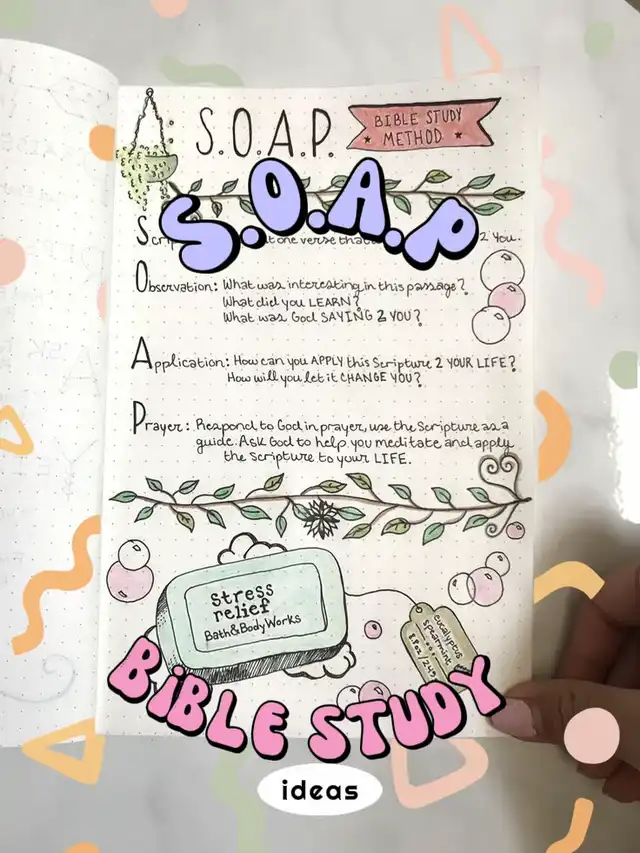 S.O.A.P.
BIBLE STUDY
METHOD
S.O.A.P
one verse that 2 You.
Observation: What was interesting in this passage?
What did you LEARN?
What was God SAYING 2 YOU?
Application: How can you APPLY this Scripture 2 YOUR LIFE?
How will you let it CHANGE YOU?
Prayer: Respond to God in prayer, use the Scripture as a
guide. Ask God to help you meditate and apply
the Scripture to your LIFE.
Stress
relief
Bath&BodyWorks
eucalyptus
spearmint
BIBLE STUDY
ideas